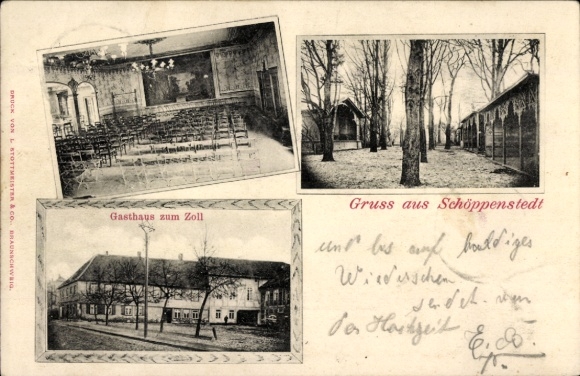 DRUCK VON L. STOTTMEISTER & CO. BRAUNSCHWEIG.
Gruss aus Schöppenstedt
Gasthaus zum Zoll
und bis auf baldiges
Wiedersehen
sendet von
der Hochzeit